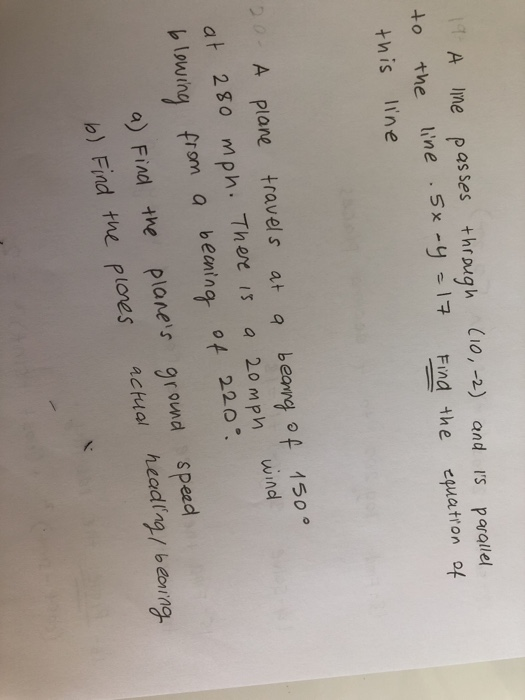 19. A line passes through (10, -2) and is parallel
to the line . 5x - y = 17 Find the equation of
this line
20. A plane travels at a bearing of 150°
at 280 mph. There is a 20 mph wind
blowing from a bearing of 220°.
a) Find the plane's ground speed
b) Find the planes actual heading/bearing